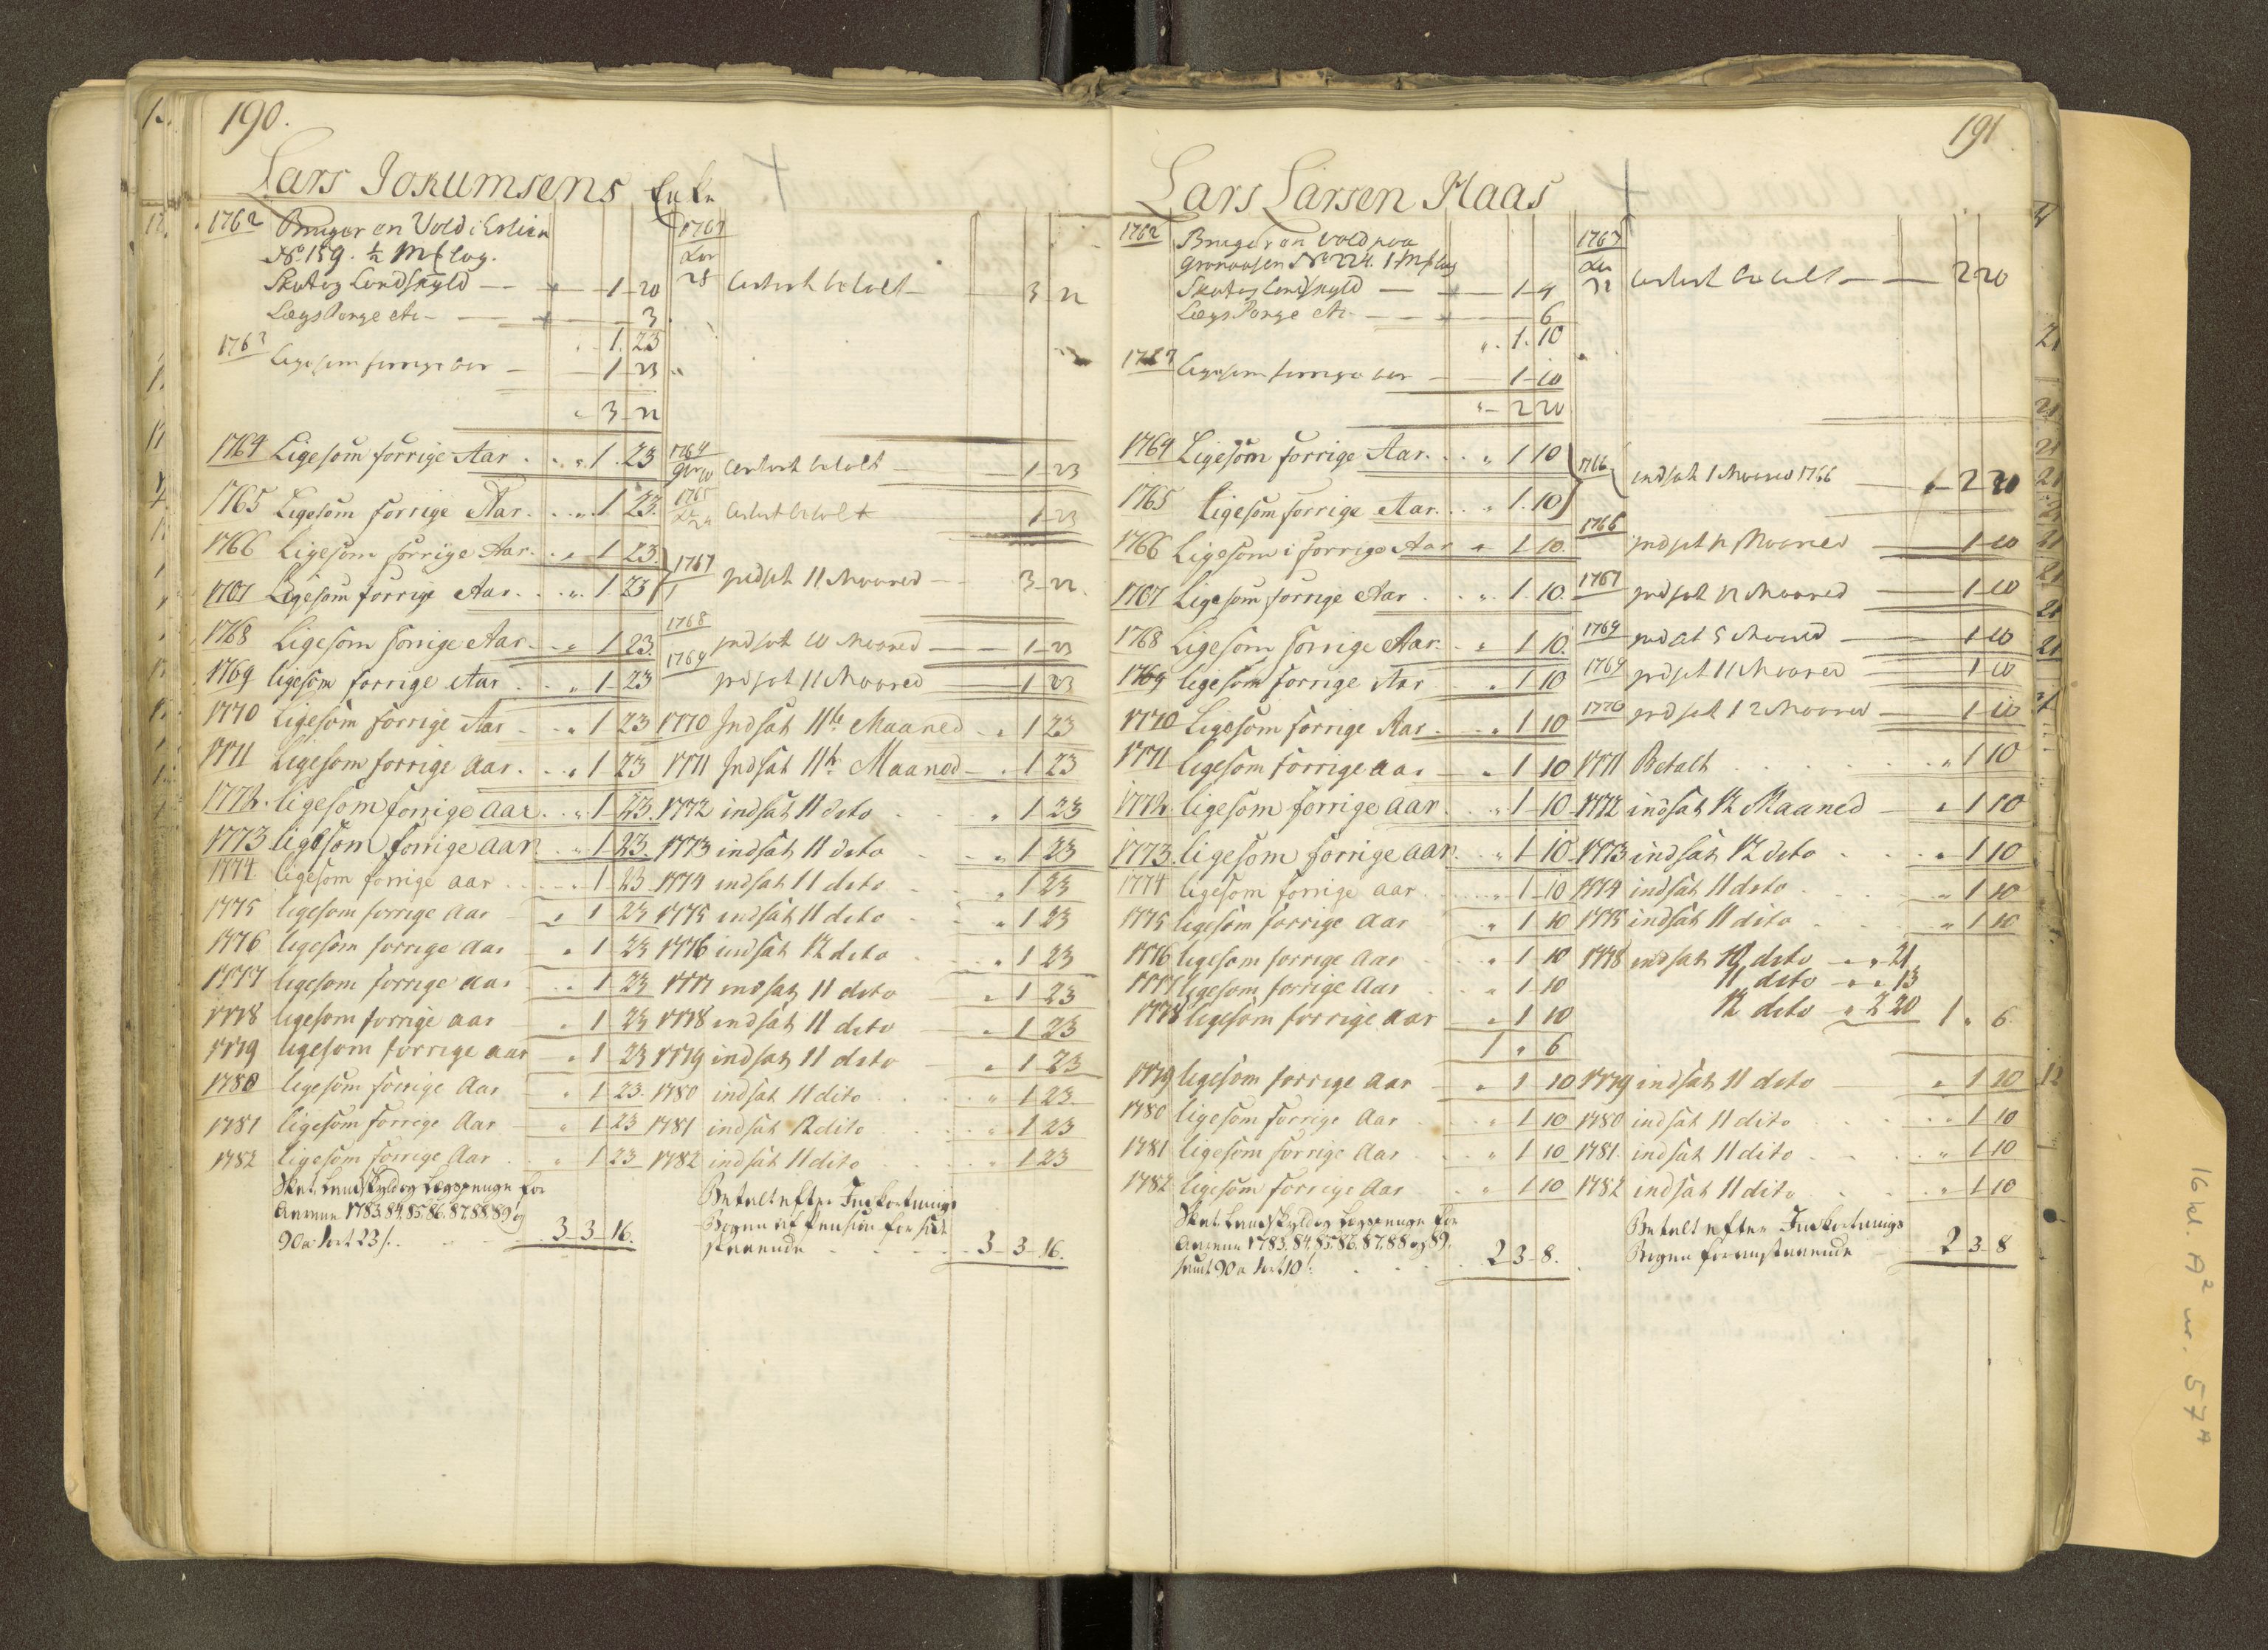 190.
Lars Jokumsens Enke
1762 Bruger en Vold i Eslien
No 159. ½ Mß Lag.
Skat og Landskyld — 1-20
Lægs Penge etc — 3
1. 23
1763 Ligesom forrige Aar — 1-23
3-22
1764 Ligesom forrige Aar . . „ 1. 23
1765 Ligesom forrige Aar . . „ 1 23.
1766 Ligesom forrige Aar . „ 1 23.
1767 Ligesom forrige Aar . . „ 1. 23
1768 Ligesom forrige Aar . „ 1 23.
1769 ligesom forrige Aar . . „ 1-23
1770 Ligesom forrige Aar . . „ 1 23
1771 Ligesom forrige Aar . . „ 1 23
1772. ligesom forrige Aar . . „ 1-23.
1773 ligesom forrige Aar . „ 1 23
1774. ligesom forrige aar . . „ 1-23
1775 ligesom forrige Aar „ 1 23
1776 ligesom forrige Aar „ 1-23
1777 ligesom forrige Aar „ 1-23
1778 ligesom forrige aar „ 1 23
1779 ligesom forrige aar „ 1 23
1780 ligesom forrige Aar „ 1 23.
1781 ligesom forrige Aar „ 1 23
1782 ligesom forrige Aar „ 1 23
Skat, Landskyld og Lægspenge for
Aarene 1783. 84. 85. 86. 87. 88. 89 og
90 a 1 ort 23 ß. . . 3-3-16.
1763
28 Contant betalt — 3-22
1764
Contant betalt — 1-23
1765
Contant betalt 1-23
1767 indsat 11 Maaned — 3-22.
1768 indsat 10 Maaned — 1-23
1769 indsat 11 Maaned 1 23
1770 Indsat 11te Maaned „ 1 23
1771 Indsat 11te Maaned „ 1 23
1772 indsat 11 dito . . „ 1 23
1773 indsat 11 dito . . „ 1 23
1774 indsat 11 dito . . „ 1 23
1775 indsat 11 dito . . „ 1 23
1776 indsat 12 dito . . „ 1 23
1777 indsat 11 dito „ 1 23
1778 indsat 11 dito „ 1 23
1779 indsat 11 dito „ 1 23
1780 indsat 11 dito . . „ 1 23
1781 indsat 12 dito . . „ 1 23
1782 indsat 11 dito . . „ 1 23
Betalt efter Inkortnings
Bogen af Pension for hid
staaende . . . 3-3-16.
191
Lars Larsen Haas
1762 Bruger en Vold paa
Gronaasen No 224. 1 Mß Lag
Skat og Landskyld — 1-4
Lægs Penge etc — 6
„ . 1. 10
1763 Ligesom forrige aar — 1-10
„ - 2 20
1764 Ligesom forrige Aar. . . „ 1 10
1765 Ligesom forrige Aar. . . „ 1. 10
1766 Ligesom i forrige Aar „ 1-10.
1767 Ligesom forrige Aar . . „ 1. 10.
1768 Ligesom forrige Aar. . „ 1 10.
1769 ligesom forrige Aar „ 1 10
1770 Ligesom forrige Aar . . „ 1 10
1771 ligesom forrige aar — „ 1 10
1772. ligesom forrige Aar. . „ 1-10
1773. ligesom forrige Aar. . „ 1-10
1774 ligesom forrige aar . . „ 1-10
1775 ligesom forrige Aar . . „ 1 10
1776 ligesom forrige Aar „ 1 10
1777 ligesom forrige Aar „ 1-10
1778 ligesom forrige Aar „ 1 10
1 „ 6
1779 ligesom forrige Aar „ 1 10
1780 ligesom forrige Aar . „ 1 10
1781 ligesom forrige Aar . „ 1 10
1782 ligesom forrige Aar . „ 1 10
Skat, Landskyld og Lægspenge for
Aarene 1783. 84. 85. 86. 87. 88 og 89.
samt 90 a 1 ort 10 ß. . . 2 3-8.
1763
Contant betalt — 2 20
1766 indsat 1 Maaned 1766 — 2 20
1766 indsat 12 Maaned — 1-10
1767 indsat 12 Maaned — 1-10
1769 indsat 5 Maaned — 1-10
1769 indsat 11 Maaned — 1-10
1770 indsat 12 Maaned — 1-10
1771 Betalt . . . „ 1 10
1772 indsat 12 Maaned — „ 1 10
1773 indsat 12 dito . . „ 1 10
1774 indsat 11 dito . . „ 1 10
1775 indsat 11 dito . . „ 1 10
1778 indsat 10 dito — „ „ 21
11 dito — „ „ 13
12 dito — „ 2 20 1 „ 6.
1779 indsat 11 dito — „ 1 10
1780 indsat 11 dito . . „ 1 10
1781. indsat 11 dito . . „ 1 10
1782 indsat 11 dito . . „ 1 10
Betalt efter Inkortnings
Bogen foranstaaende — 2 3-8
16 kl. A² nr. 57ᴬ